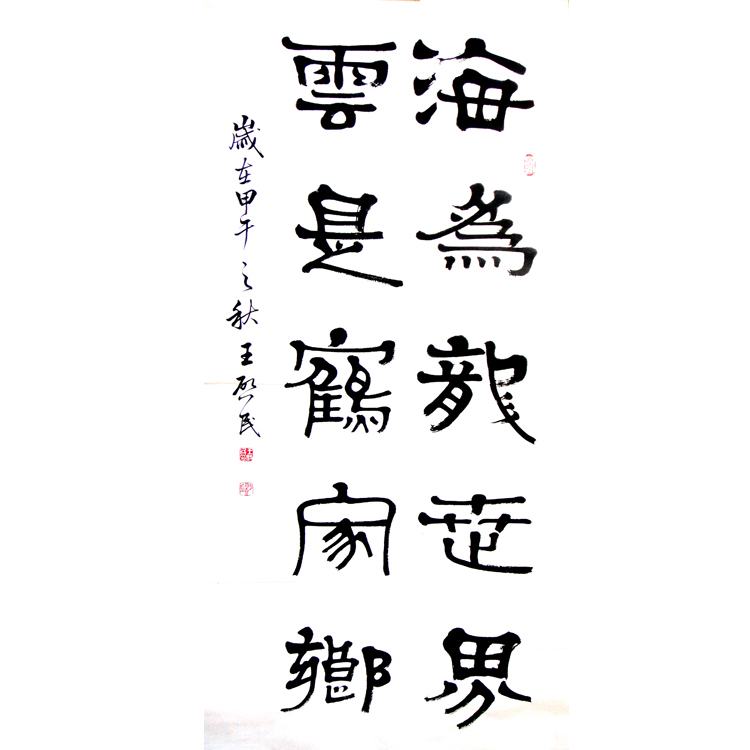 海為龍世界
雲是鶴家鄉
歲在甲午之秋王啟民